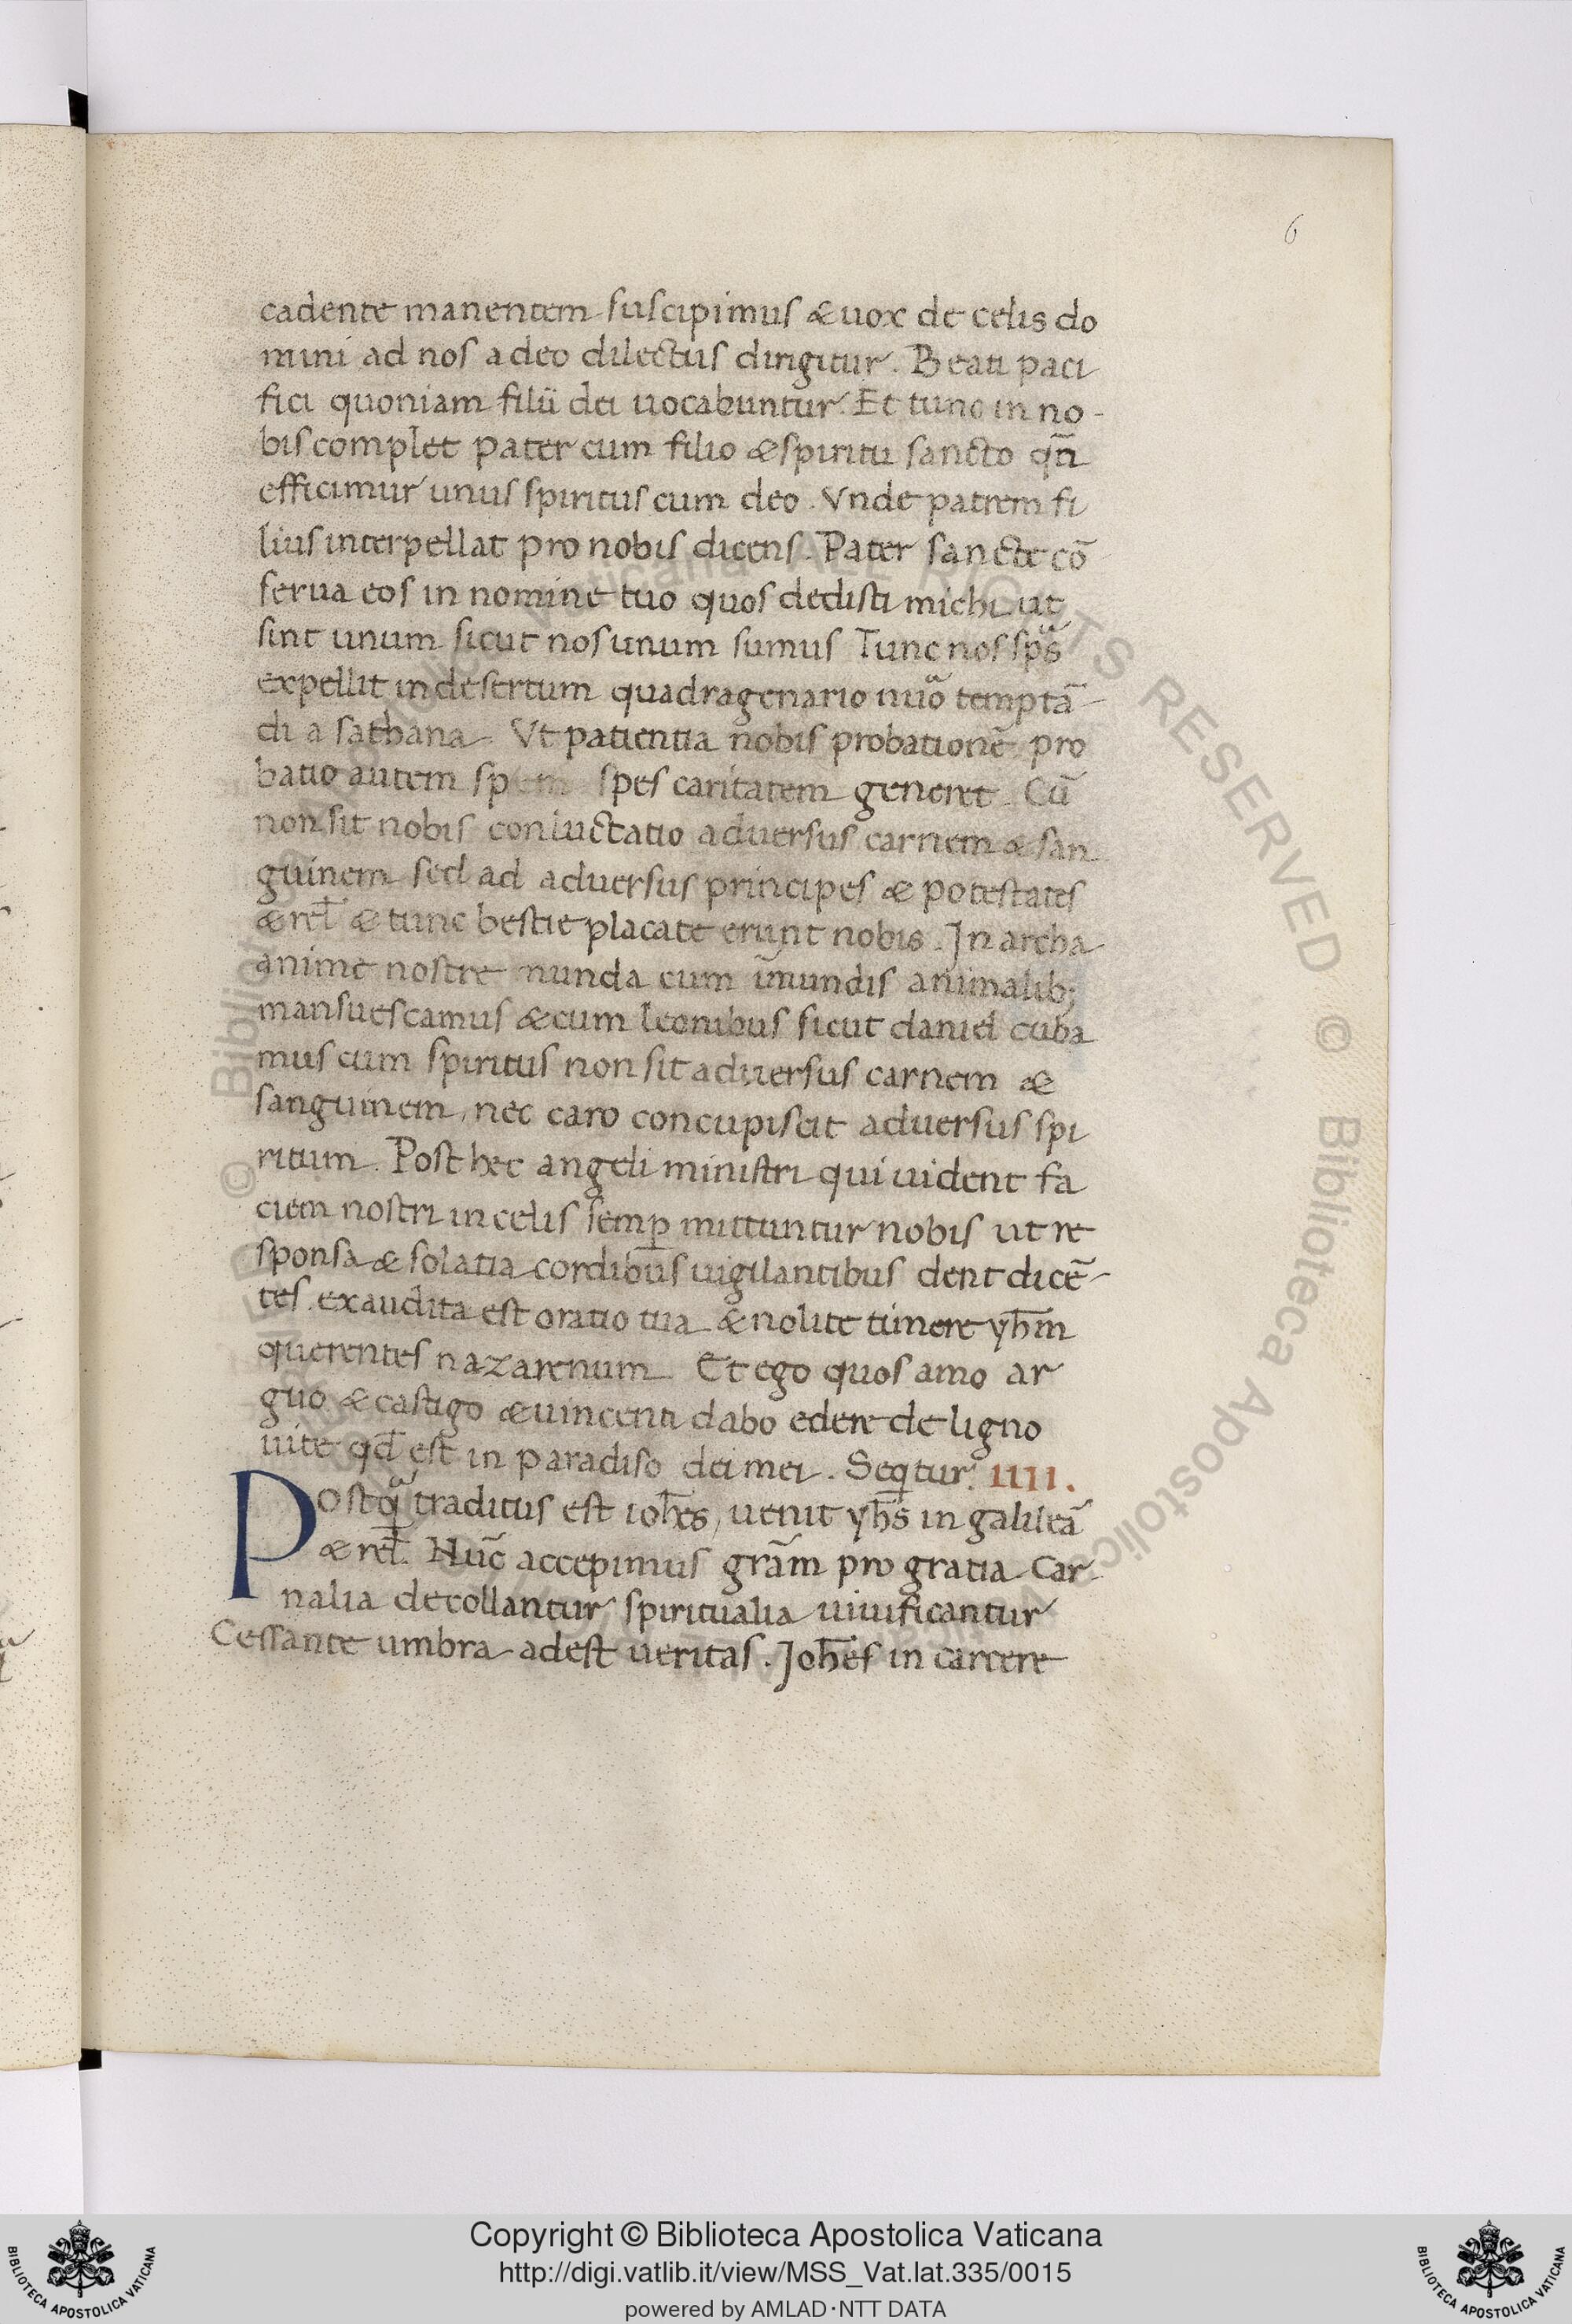 6
cadente manentem suscipimus & uox de celis do
mini ad nos a deo dilectus dirigitur. Beati paci
fici quoniam filii dei uocabuntur. Et tunc in no-
bis complet pater cum filio & spiritu sancto qñ
efficimur unus spiritus cum deo. Vnde patrem fi
lius interpellat pro nobis dicens. Pater sancte cō
serua eos in nomine tuo quos dedisti michi ut
sint unum sicut nos unum sumus Tunc nos sp̄s
expellit in desertum quadragenario nũo temptā
di a sathana. Vt patientia nobis probationē pro
batio autem spem spes caritatem generet. Cū
non sit nobis conluctatio aduersus carnem & san
guinem sed ad aduersus principes & potestates
& rel̄ & tunc bestie placate erunt nobis. In archa
anime nostre munda cum īmundis animalib;
mansuescamus & cum leonibus sicut daniel cuba
mus cum spiritus non sit aduersus carnem &
sanguinem, nec caro concupiscit aduersus spi
ritum. Post hec angeli ministri qui uident fa
ciem nostri in celis semꝑ mittuntur nobis ut re
sponsa & solatia cordibus uigilantibus dent dicē-
tes. exaudita est oratio tua & nolite timere yh̄m
querentes nazarenum. Et ego quos amo ar
guo & castigo & uincenti dabo edere de ligno
uite qd̄ est in paradiso dei mei. Seq̄tur. IIII.
Postq̃ traditus est ioh̄es, uenit yh̄s in galileā
& rel̄. Hūc accepimus grām pro gratia. Car
nalia decollantur spiritualia uiuificantur
Cessante umbra adest ueritas. Joh̄es in carcere
© Biblioteca Apostolica Vaticana ALL RIGHTS RESERVED
Copyright © Biblioteca Apostolica Vaticana
http://digi.vatlib.it/view/MSS_Vat.lat.335/0015
powered by AMLAD·NTT DATA
BIBLIOTECA APOSTOLICA VATICANA
BIBLIOTECA APOSTOLICA VATICANA